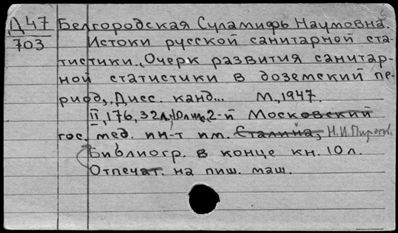 Д 47 Белгородская Суламифь Наумовна.
703 Истоки русской санитарной ста-
тистики. Очерк развития санитар-
ной статистики в доземский пе-
риод. Дисс. канд... М., 1947.
II, 176, 32л, 10л, 2-й Московский
гос. мед. ин-т им. Сталина, Н.И. Пирогов
Библиогр. в конце кн. 10 л.
Отпечат. на пиш. маш.